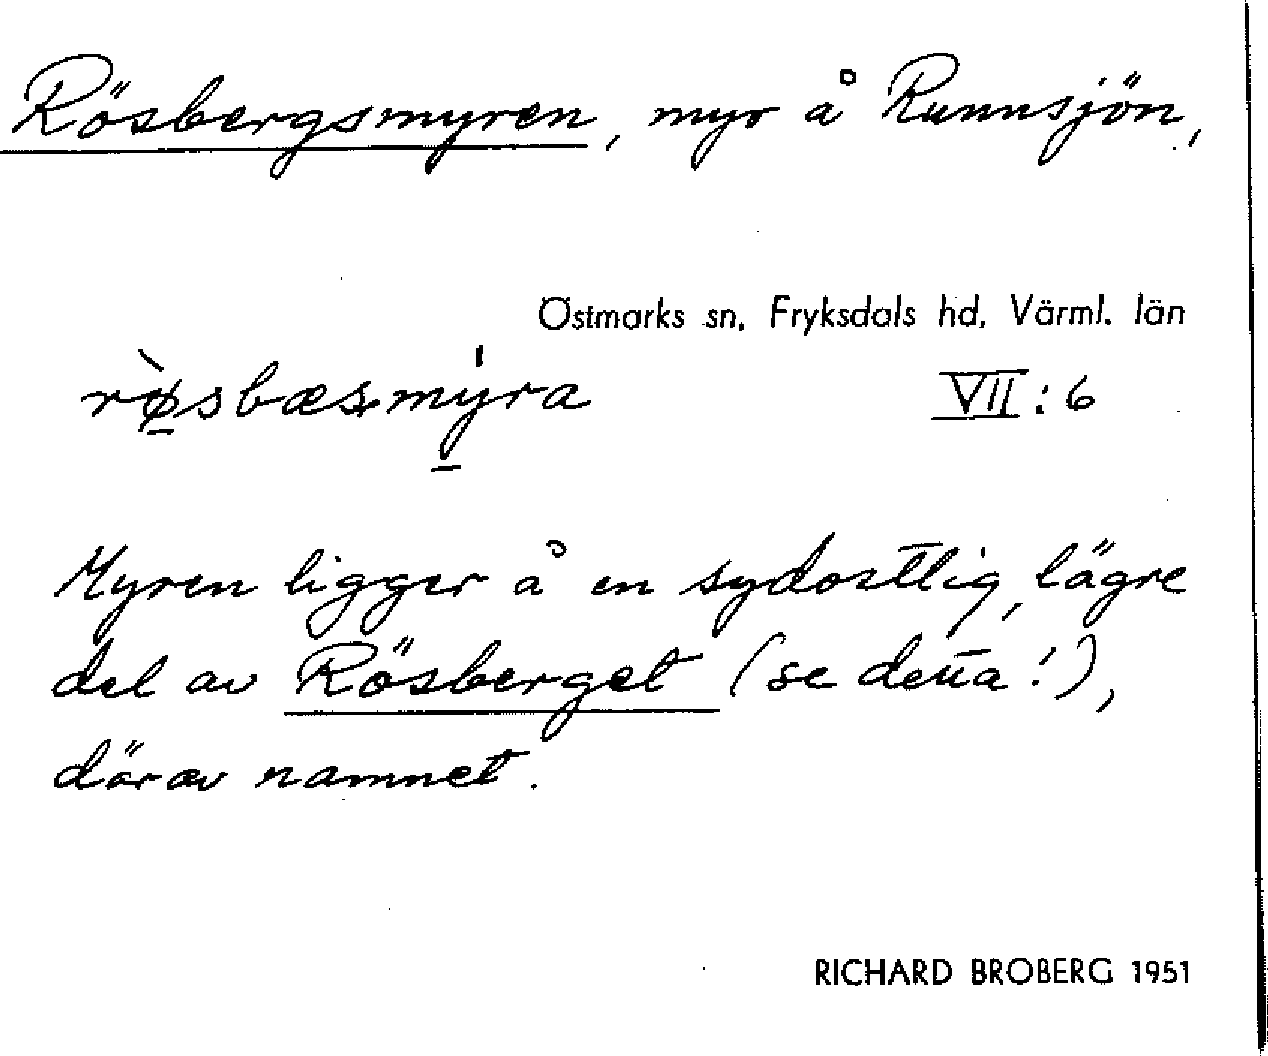 Rösbergsmyren, myr å Runnsjön,
Östmarks sn, Fryksdals hd, Värml. län
rø̀sbæsmýra VII:6
Myren ligger å en sydostlig, lägre
del av Rösberget (se detta!),
därav namnet.
RICHARD BROBERG 1951